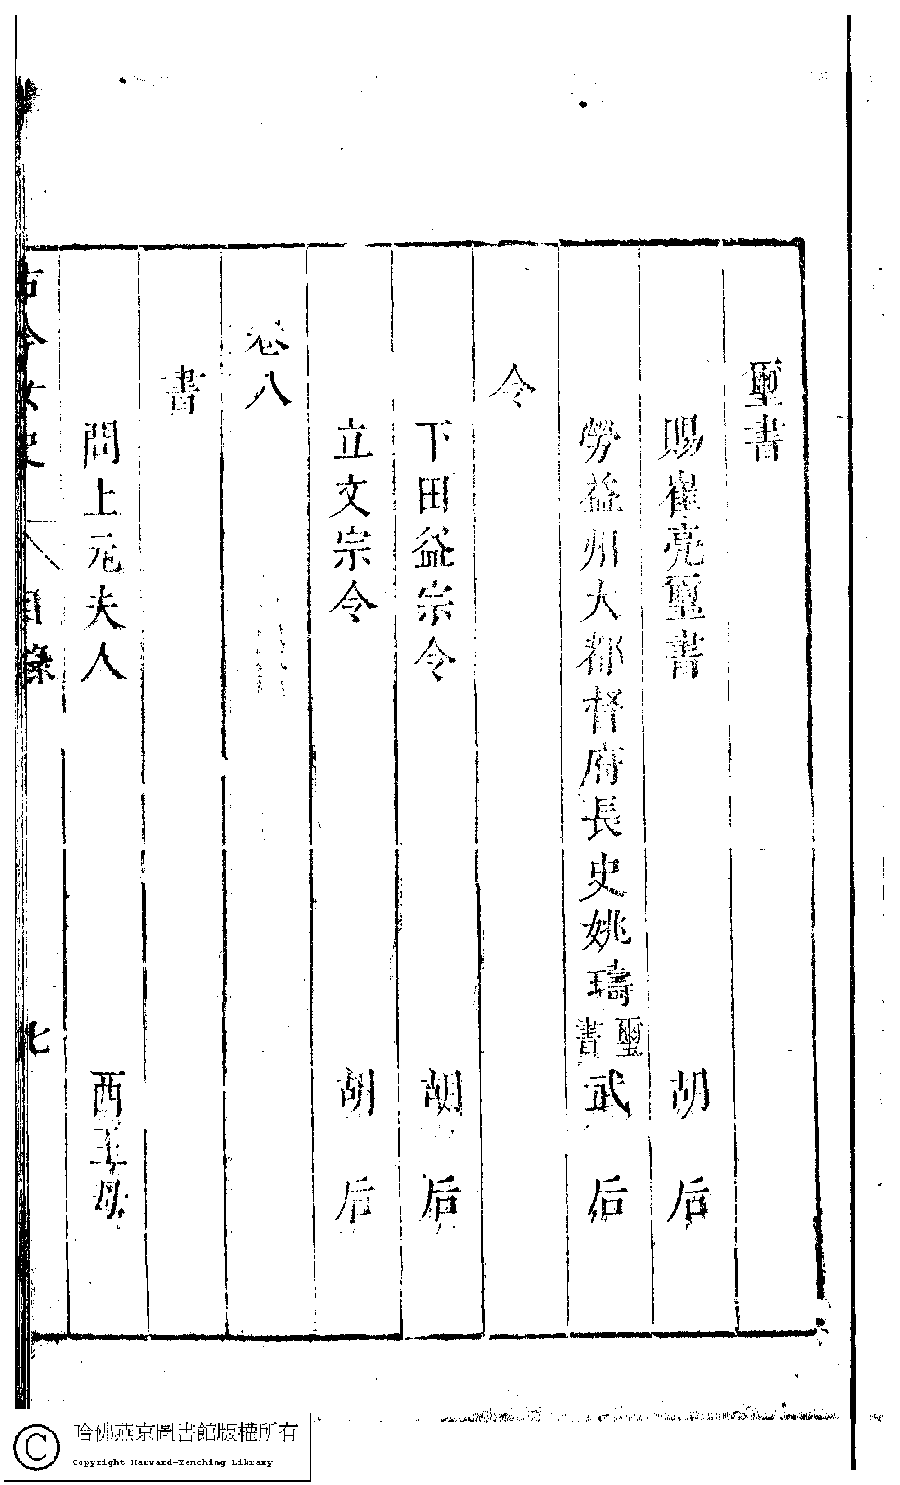 璽書
賜崔亮璽書　胡后
勞益州大都督府長史姚璹璽書　武后
令
下田益宗令　胡后
立文宗令　胡后
卷八
書
問上元夫人　西王母
古今女史　目錄　七
哈佛燕京圖書館版權所有
Copyright Harvard-Yenching Library